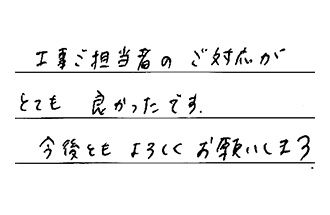 工事ご担当者の ご対応が
とても 良かったです.
今後とも よろしく お願いします